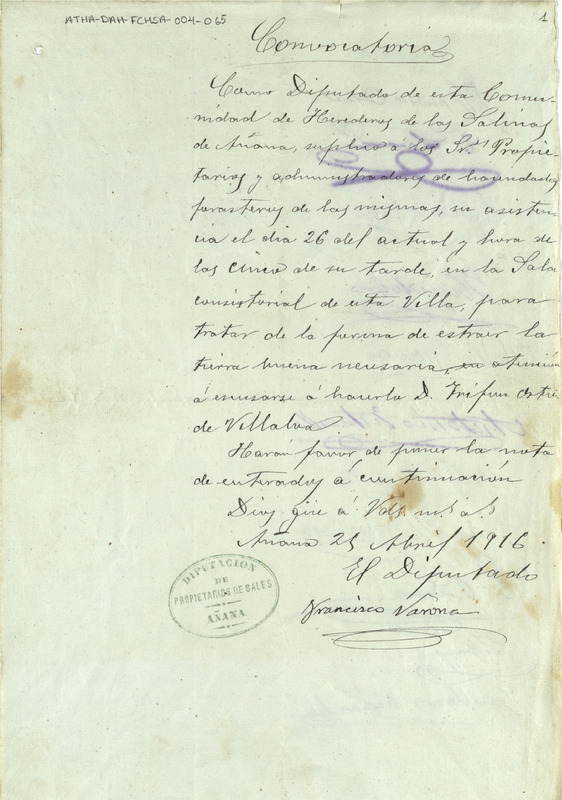 ATHA-DAH-FCHSA-004-065
1
Convocatoria
Como Diputado de esta Comu-
nidad de Herederos de las Salinas
de Añana, suplico á los Srs Propie-
tarios y administradores de hacendados
forasteros de las mismas, su asisten-
cia el dia 26 del actual y hora de
las cinco de su tarde, en la Sala
consistorial de esta Villa, para
tratar de la forma de estraer la
tierra buena necesaria, en atención
á escusarse á hacerla D. Trifun
de Villalva
Harán favor de poner la nota
de enterados á continuación
Dios gue á Vds. m.s a.s
Añana 25 Abril 1916.
El Diputado
Francisco Varona
DIPUTACION
DE
PROPIETARIOS DE SALES
AÑANA